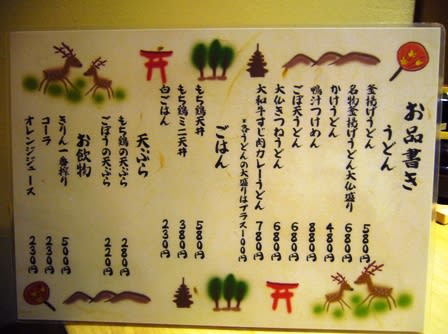 お品書き
うどん
釜揚げうどん 580円
名物釜揚げうどん大仏盛り 680円
かけうどん 480円
鴨汁つけめん 880円
ごぼ天うどん 680円
大仏きつねうどん 680円
大和牛すじ肉カレーうどん 780円
※各うどんの大盛りはプラス100円
ごはん
もち鶏天丼 580円
もち鶏ミニ天丼 380円
白ごはん 230円
天ぷら
もち鶏の天ぷら 280円
ごぼうの天ぷら 220円
お飲物
きりん一番搾り 500円
コーラ 230円
オレンジジュース 230円